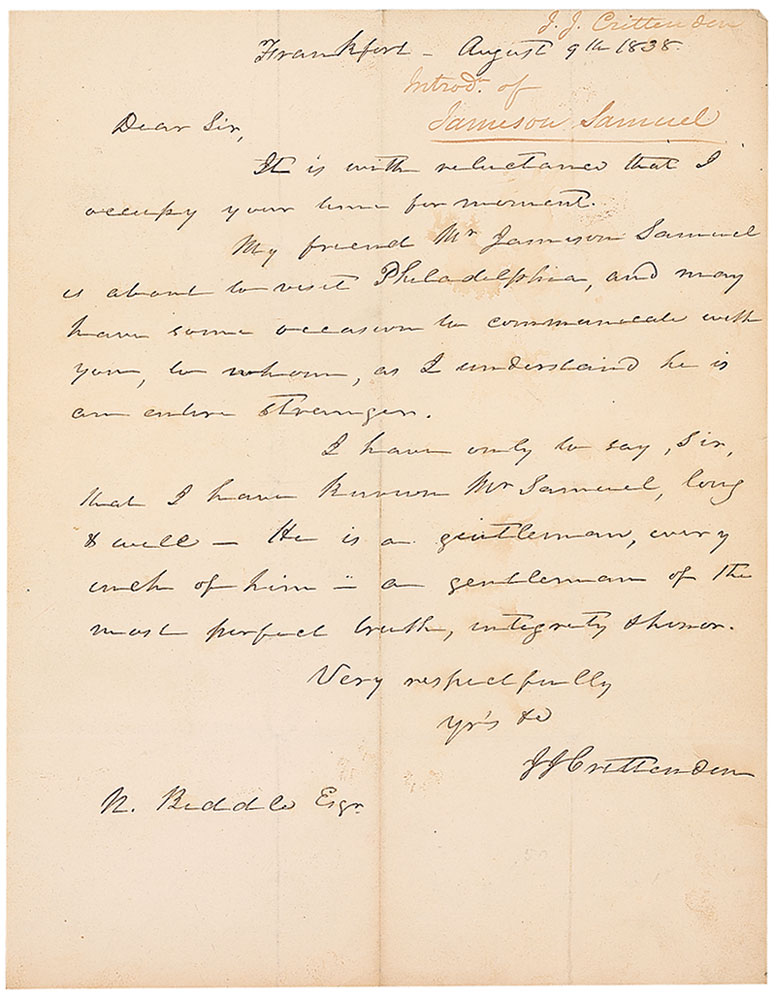 J. J. Crittenden
Frankfort – August 9th 1838.
Introdn. of
Jameson Samuel
Dear Sir,
It is with reluctance that I
occupy your time for moment.
My friend Mr Jameson Samuel
is about to visit Philadelphia, and may
have some occasion to communicate with
you, to whom, as I understand he is
an entire stranger.
I have only to say, Sir,
that I have known Mr Samuel, long
& well – He is a gentleman, every
inch of him – a gentleman of the
most perfect truth, integrity & honor.
Very respectfully
Yr's &c
JJCrittenden
N. Biddle Esqr.